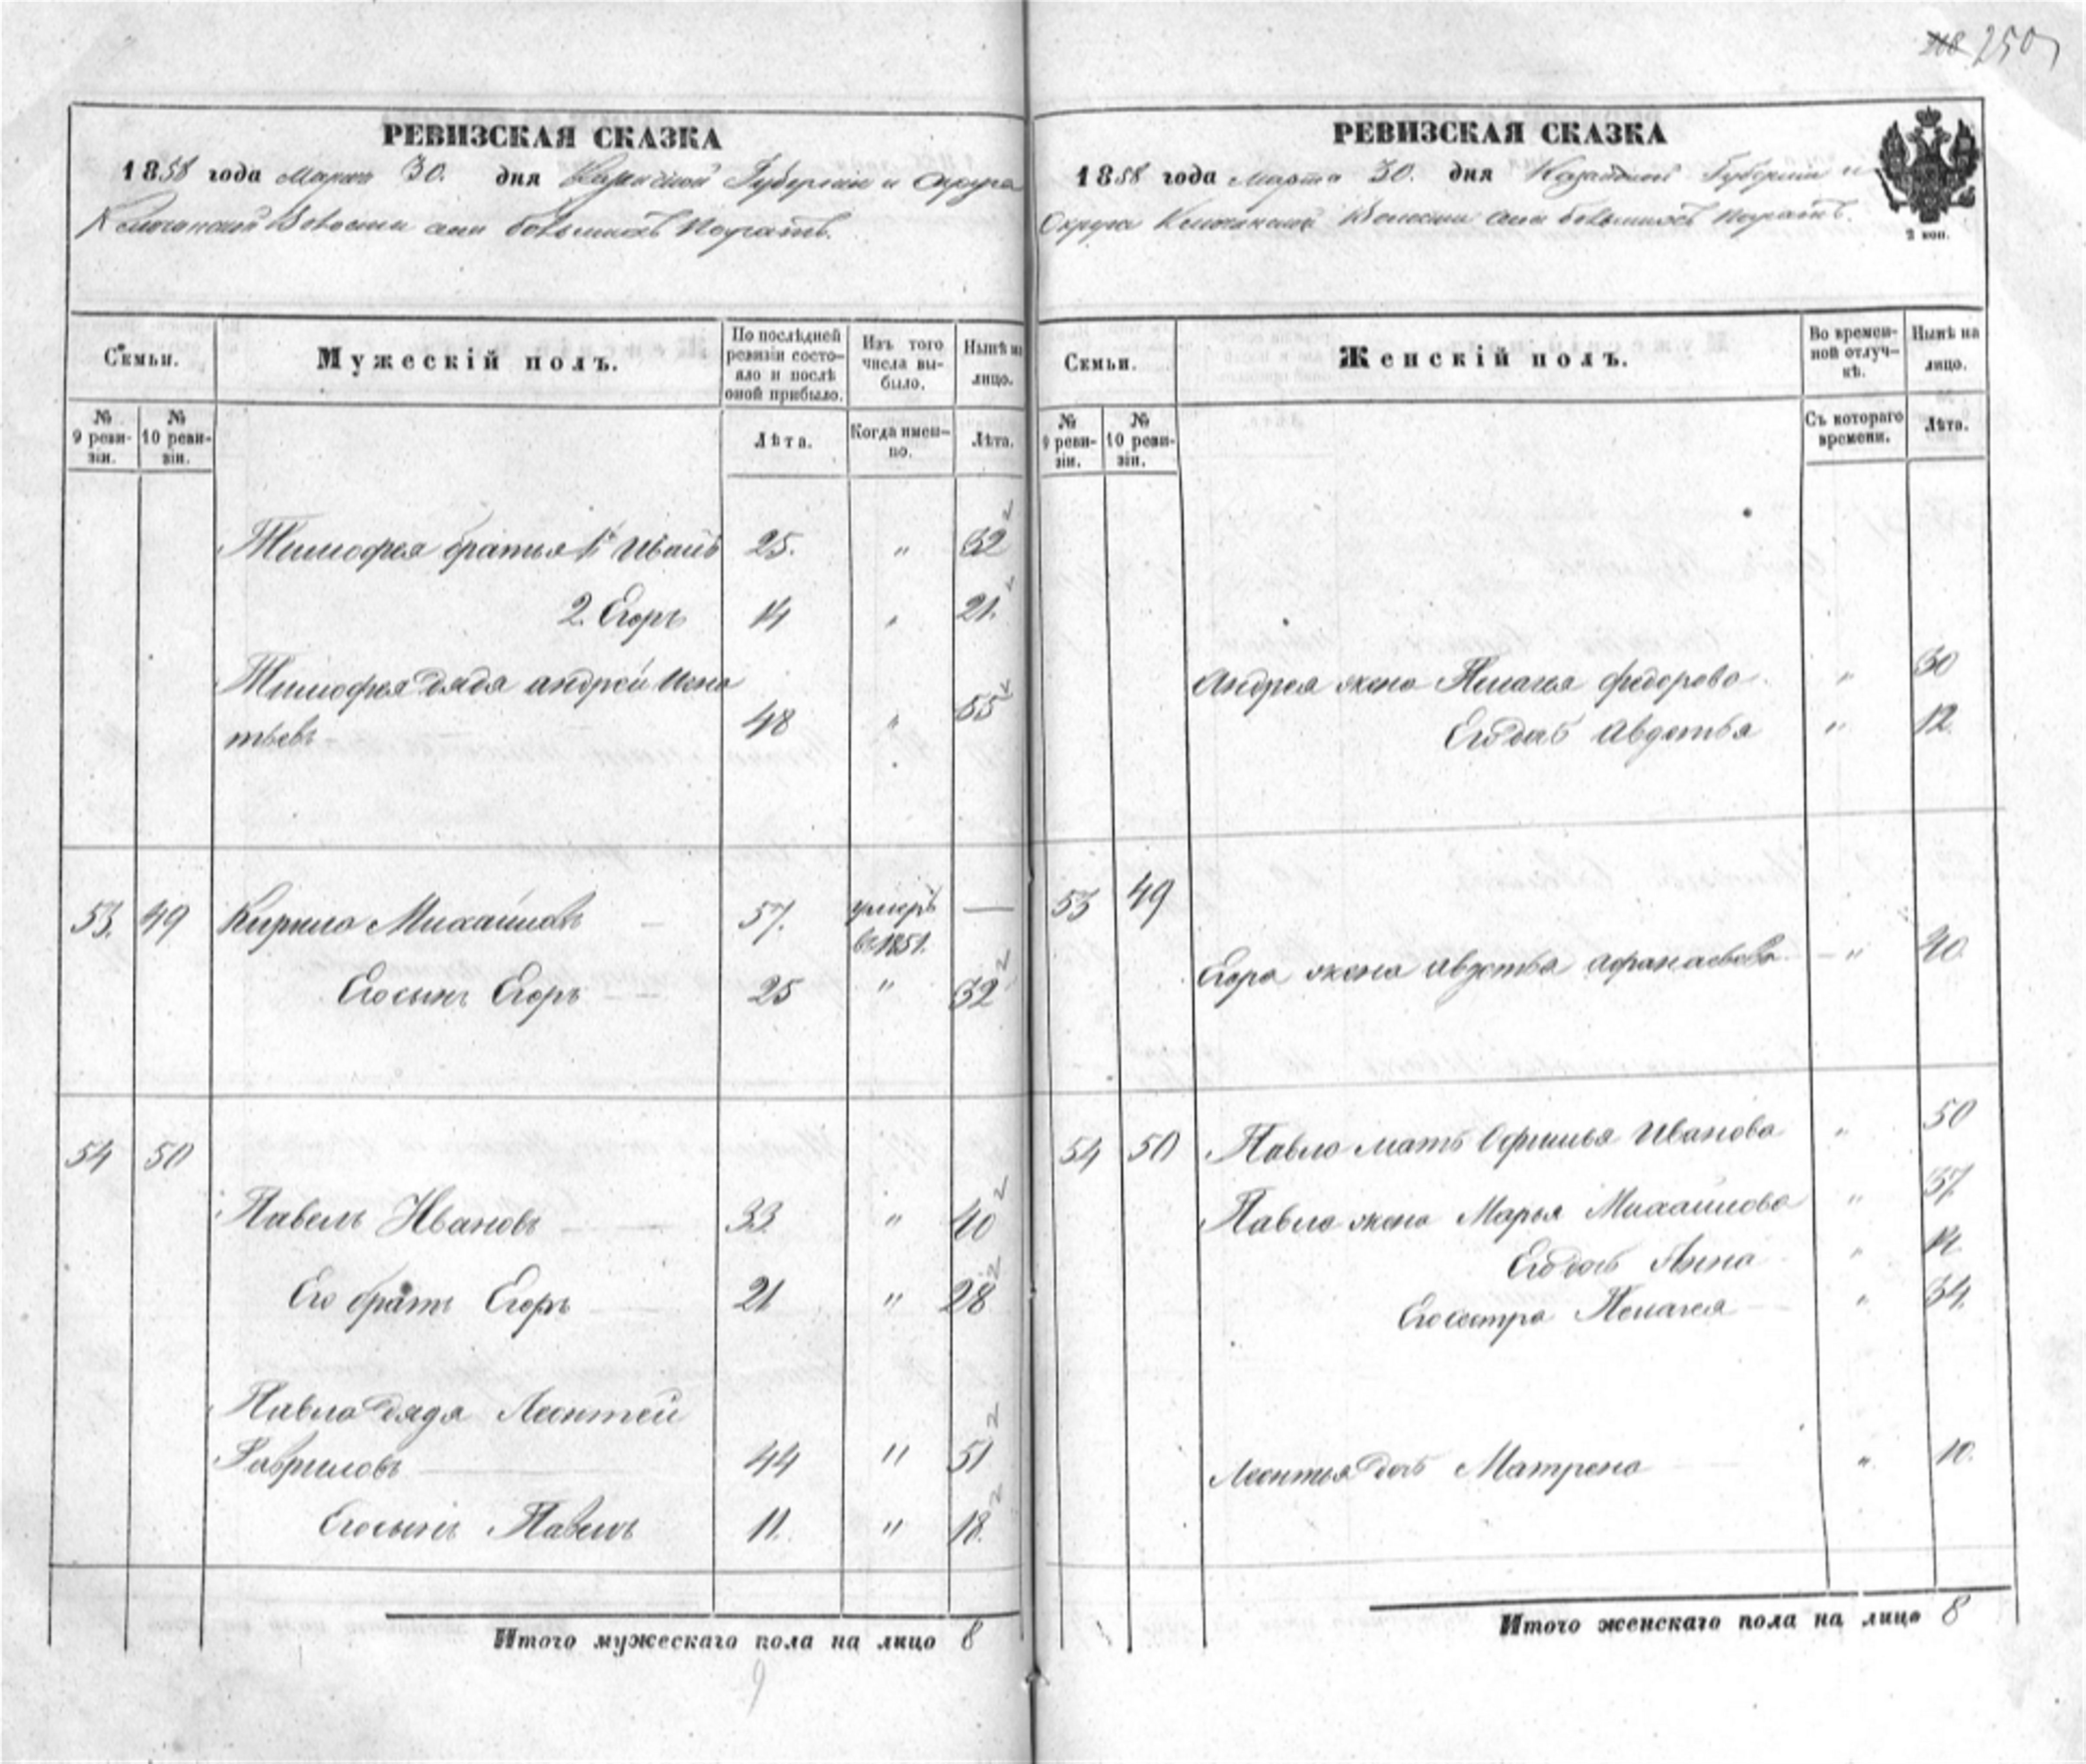 250
РЕВИЗСКАЯ СКАЗКА
1858 года Марта 30. дня Казанской Губернии и Округа
Волости села большихъ
Семьи.
Мужескій полъ.
По послѣдней ревизіи состояло и послѣ оной прибыло.
Изъ того числа выбыло.
Нынѣ на лицо.
№ 9 ревизіи.
№ 10 ревизіи.
Лѣта.
Когда именно.
Лѣта.
Тимофея братья 1й Иванъ 25. " 32
2. Егоръ 14 " 21.
Тимофея дядя андрей Игна
тьевъ 48 " 55
53. 49 Кирило Михайловъ — 57. умеръ в 1851. —
Его сынъ Егоръ — 25 " 32
54 50
Павелъ Ивановъ — 33. " 40
Его братъ Егоръ — 21 " 28
Павла дядя Леонтей
Гавриловъ — 44 " 51
Его сынъ Павелъ 11. " 18.
Итого мужескаго пола на лицо 8
9
РЕВИЗСКАЯ СКАЗКА
1858 года Марта 30. дня Казанской Губерніи и
Округа Волости села большихъ
2 коп.
Семьи.
Женскій полъ.
Во временной отлучкѣ.
Нынѣ на лицо.
№ 9 ревизіи.
№ 10 ревизіи.
Съ котораго времени.
Лѣта.
Андрея жена Пелагея федорова " 30
Его дочь Авдотья " 12.
53 49
Егора жена авдотья афанасьева — " 40.
54 50 Павла мать Офимья Иванова " 50
Павла жена Марья Михайлова " 37.
Его дочь Анна "
Его сестра Пелагея — " 34.
Леонтья дочь Матрена — " 10.
Итого женскаго пола на лицо 8